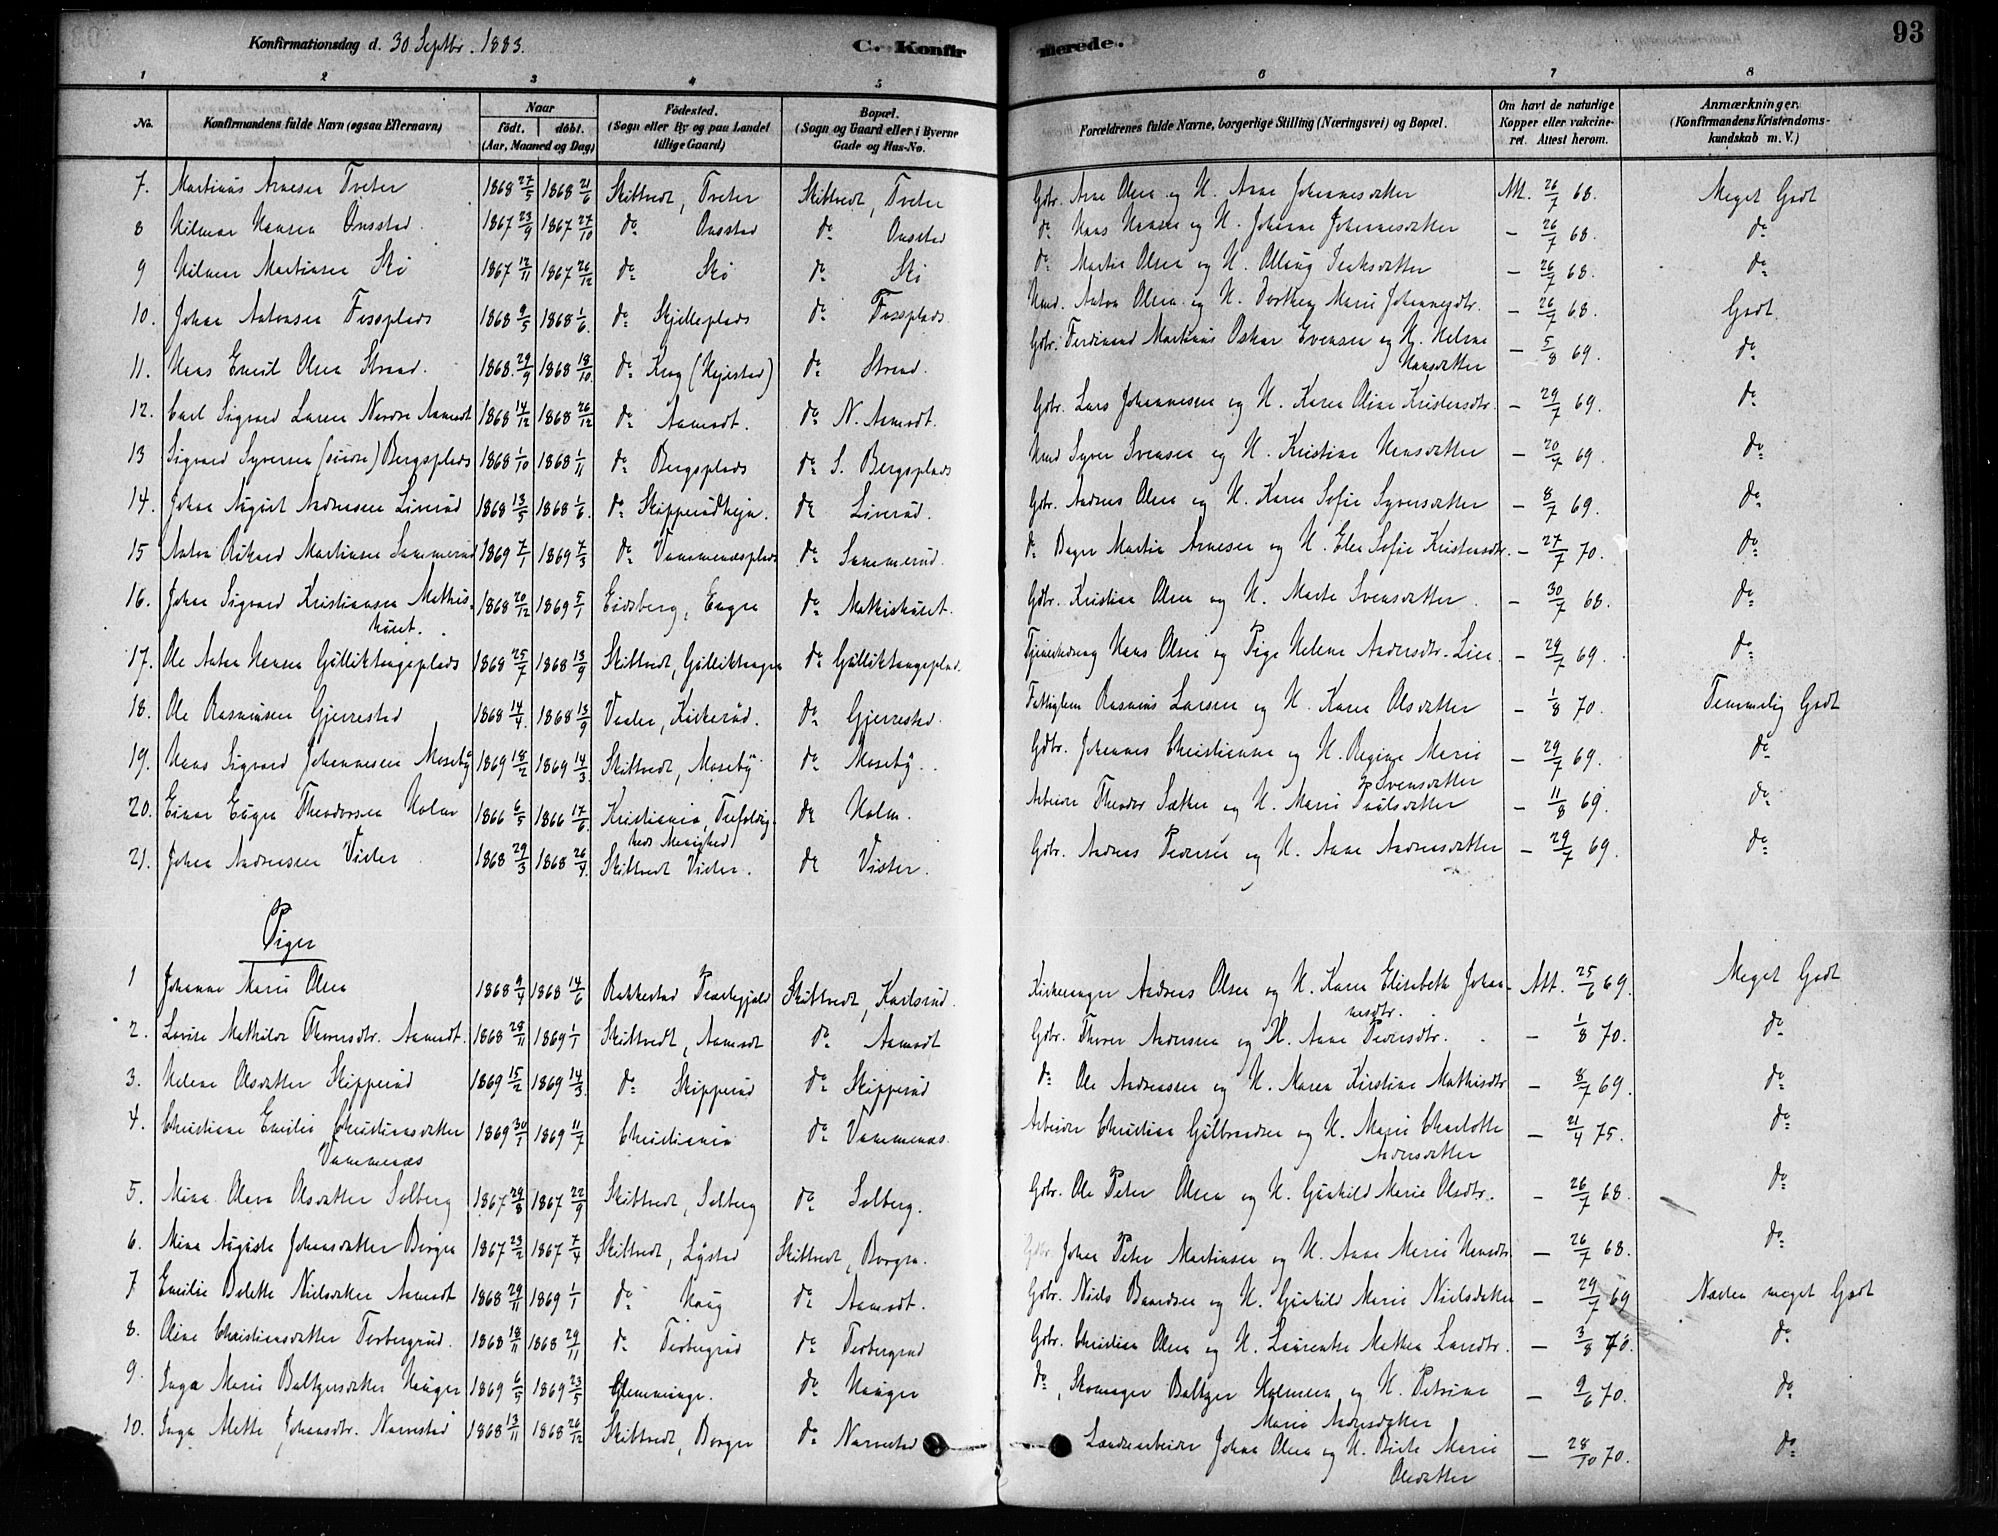 Konfirmationsdag d. 30. Septbr. 1883.
C. Konfirmerede.
93
1 2 3 4 5 6 7 8
No. Konfirmandens fulde Navn (ogsaa Efternavn)
Naar født. døbt. (Aar, Maaned og Dag)
Fødested. (Sogn eller By og paa Landet tillige Gaard)
Bopæl. (Sogn og Gaard eller i Byerne Gade og Hus-No.
Forældrenes fulde Navne, borgerlige Stilling (Næringsvei) og Bopæl.
Om havt de naturlige Kopper eller vakcineret. Attest herom.
Anmærkninger. (Konfirmandens Kristendomskundskab m. V.)
7. Martinius Arnesen Tveter 1868 27/5 1868 21/6 Skiptvedt, Tveter Skiptvedt, Tveter Gdbr. Arne Olsen og H. Anne Johannesdatter Att. 26/7 68. Meget Godt
8 Hilmar Hansen Onsstad. 1867 23/9 1867 27/10 do Onsstad do Onsstad do Hans Hansen og H. Johanne Johannesdatter — 26/7 68. do
9 Hilmar Martinsen Skø 1867 12/11 1867 26/12 do Skø do Skø do Martin Olsen og H. Ollaug Isaksdatter — 26/7 68. do
10. Johan Antonsen Fossplads 1868 9/5 1868 1/6 do Skjelleplads do Fossplads. Hmd. Anton Olsen og H. Dorthea Marie Johannesdtr. — 26/7 68. Godt
11. Hans Emil Olsen Strand. 1868 29/9 1868 18/10 do Krog (Hejestad) do Strand. Gdbr. Ferdinand Martinius Oskar Evensen og H. Helene Hansdatter — 5/8 69. do
12. Carl Sigvard Larsen Nordre Aamodt 1868 14/12 1868 26/12 do Aamodt. do N. Aamodt. Gdbr. Lars Johannesen og H. Karen Oline Kristensdtr. — 29/7 69. do
13 Sigvard Syversen (søndre) Bergsplads 1868 1/10 1868 1/11 do Bergsplads do S. Bergsplads Hmd Syver Svensen og H. Kristine Hansdatter — 20/7 69. do
14. Johan August Andresen Lierud 1868 13/5 1868 1/6. do Skipperudheja. do Lierud. Gdbr. Andreas Olsen og H. Karen Sofie Syversdatter — 8/7 69. do
15 Anton Rikard Martinsen Sammerud 1869 7/1 1869 7/3 do Vammenæsplads do Sammerud. do Bager Martin Arnesen og H. Elen Sofie Kristensdtr. — 27/7 70. do
16. Johan Sigvard Kristiansen Mathishuset. 1868 20/12 1869 5/1 Eidsberg, Engen do Mathishuset. Gdbr. Kristian Olsen og H. Marte Svensdatter. — 30/7 68. do
17. Ole Anton Hansen Gulliktangeplads 1868 25/7 1868 13/9 Skiptvedt, Gulliktangen do Gulliktangeplad. Tjenestedreng Hans Olsen og Pige Helene Andersdtr. Lien — 29/7 69. do
18. Ole Rasmussen Gjerrestad 1868 14/4. 1868 13/9 Vaaler, Kirkerud. do Gjerrestad. Fattiglem Rasmus Larsen og H. Karen Olsdatter — 1/8 70. Temmelig Godt
19. Hans Sigvard Johannesen Moseby 1869 18/2 1869 14/3 Skiptvedt, Moseby do Moseby. Gdbr. Johannes Christiansen og H. Regine Marie Svensdatter — 29/7 69. do
20. Einar Eugen Theodorsen Holm 1866 6/5 1866 17/6. Kristiania, Trefoldigheds Menighed do Holm. Arbeider Theodor Sæther og H. Marie Paulsdatter — 11/8 69. do
21. Johan Andreassen Vister 1868 29/3 1868 26/4. Skiptvedt Vister. do Vister. Gdbr. Andreas Pedersen og H. Anne Andreasdatter — 29/7 69. do
Piger
1 Johanne Marie Olsen 1868 9/4 1868 14/6 Rakkestad Præstegjeld Skiptvedt, Karlsrud. Kirkesanger Andreas Olsen og H. Karen Elisabeth Johannesdtr. Att. 25/6 69. Meget Godt
2. Lovise Mathilde Thoresdtr. Aamodt. 1868 28/11 1869 1/1 Skiptvedt, Aamodt do Aamodt Gdbr. Thorer Andersen og H. Anne Pedersdtr. — 1/8 70. do
3. Helene Olsdatter Skipperud 1869 15/2 1869 14/3 do Skipperud do Skipperud do Ole Andreassen og H. Maren Kirstine Mathisdtr — 8/7 69. do
4. Christiane Emilie Christiansdatter Vammenæs 1869 30/1 1869 11/7 Christiania do Vammenæs. Arbeider Christian Gulbrandsen og H. Marie Charlotte Andersdatter — 21/4 75. do
5. Mina Olava Olsdatter Solberg 1867 29/8 1867 22/9 Skiptvedt, Solberg do Solberg. Gdbr. Ole Peter Olsen og H. Gunhild Marie Olsdtr. — 26/7 68. do
6. Mina Augusta Johansdatter Borgen 1867 23/2 1867 7/4 Skiptvedt, Lystad Skiptvedt, Borgen. Gdbr. Johan Peter Martinsen og H. Anne Marie Hansdtr — 26/7 68. do
7 Emilie Bolette Nielsdatter Aamodt 1868 29/11 1869 1/1 do Haug do Aamodt. Gdbr. Niels Baardsen og H. Gunhild Marie Nielsdatter — 29/7 69 Næsten meget Godt
8. Oline Christiansdatter Torbergrud. 1868 18/11 1868 29/11 do Torbergrud do Torbergrud Gdbr. Christian Olsen og H. Laurentse Mathea Larsdtr. — 3/8 70. do
9. Inga Marie Baltzersdatter Haugen 1869 6/5 1869 23/5 Glemminge. do Haugen do, Skomager Baltzer Holmsen og H. Petrine Marie Andersdatter — 9/6 70. do
10. Inga Mette Johansdtr. Narvestad 1868 13/11 1868 26/12 Skiptvedt, Borgen do Narvestad Landarbeider Johan Olsen og H. Birte Marie Olsdatter — 28/10 70. do